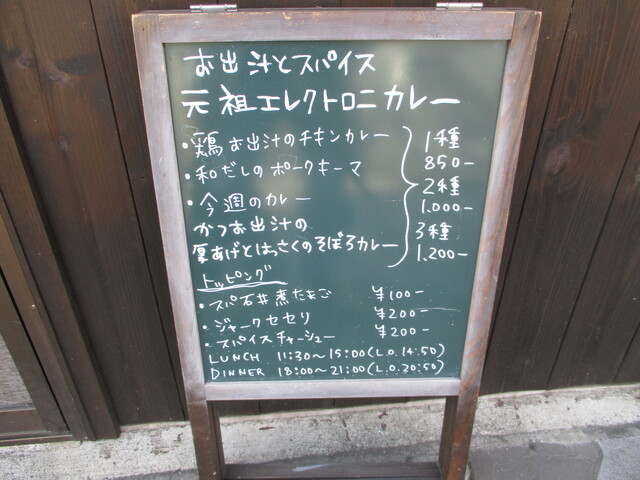 お出汁とスパイス
元祖エレクトロニカレー
・鶏お出汁のチキンカレー
・和だしのポークキーマ
・今週のカレー
かつお出汁の
厚あげとはっさくのそぼろカレー
1種
850-
2種
1.000-
3種
1.200-
トッピング
・スパ石井煮たまご ¥100-
・ジャークセセリ ¥200-
・スパイスチャーシュー ¥200-
LUNCH 11:30〜15:00(L.O.14:50)
DINNER 18:00〜21:00(L.O.20:50)